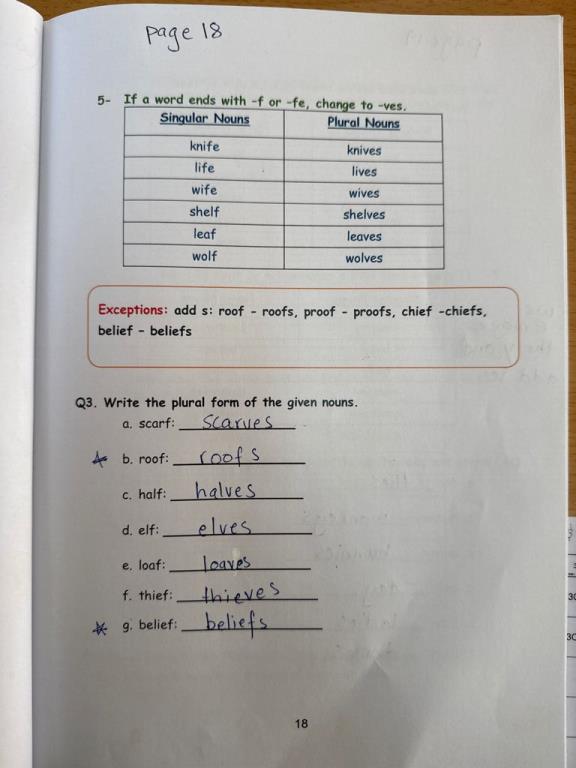 page 18
5- If a word ends with -f or -fe, change to -ves.
Singular Nouns Plural Nouns
knife knives
life lives
wife wives
shelf shelves
leaf leaves
wolf wolves
Exceptions: add s: roof - roofs, proof - proofs, chief -chiefs,
belief - beliefs
Q3. Write the plural form of the given nouns.
a. scarf: scarves
b. roof: roofs
c. half: halves
d. elf: elves
e. loaf: loaves
f. thief: thieves
g. belief: beliefs
18